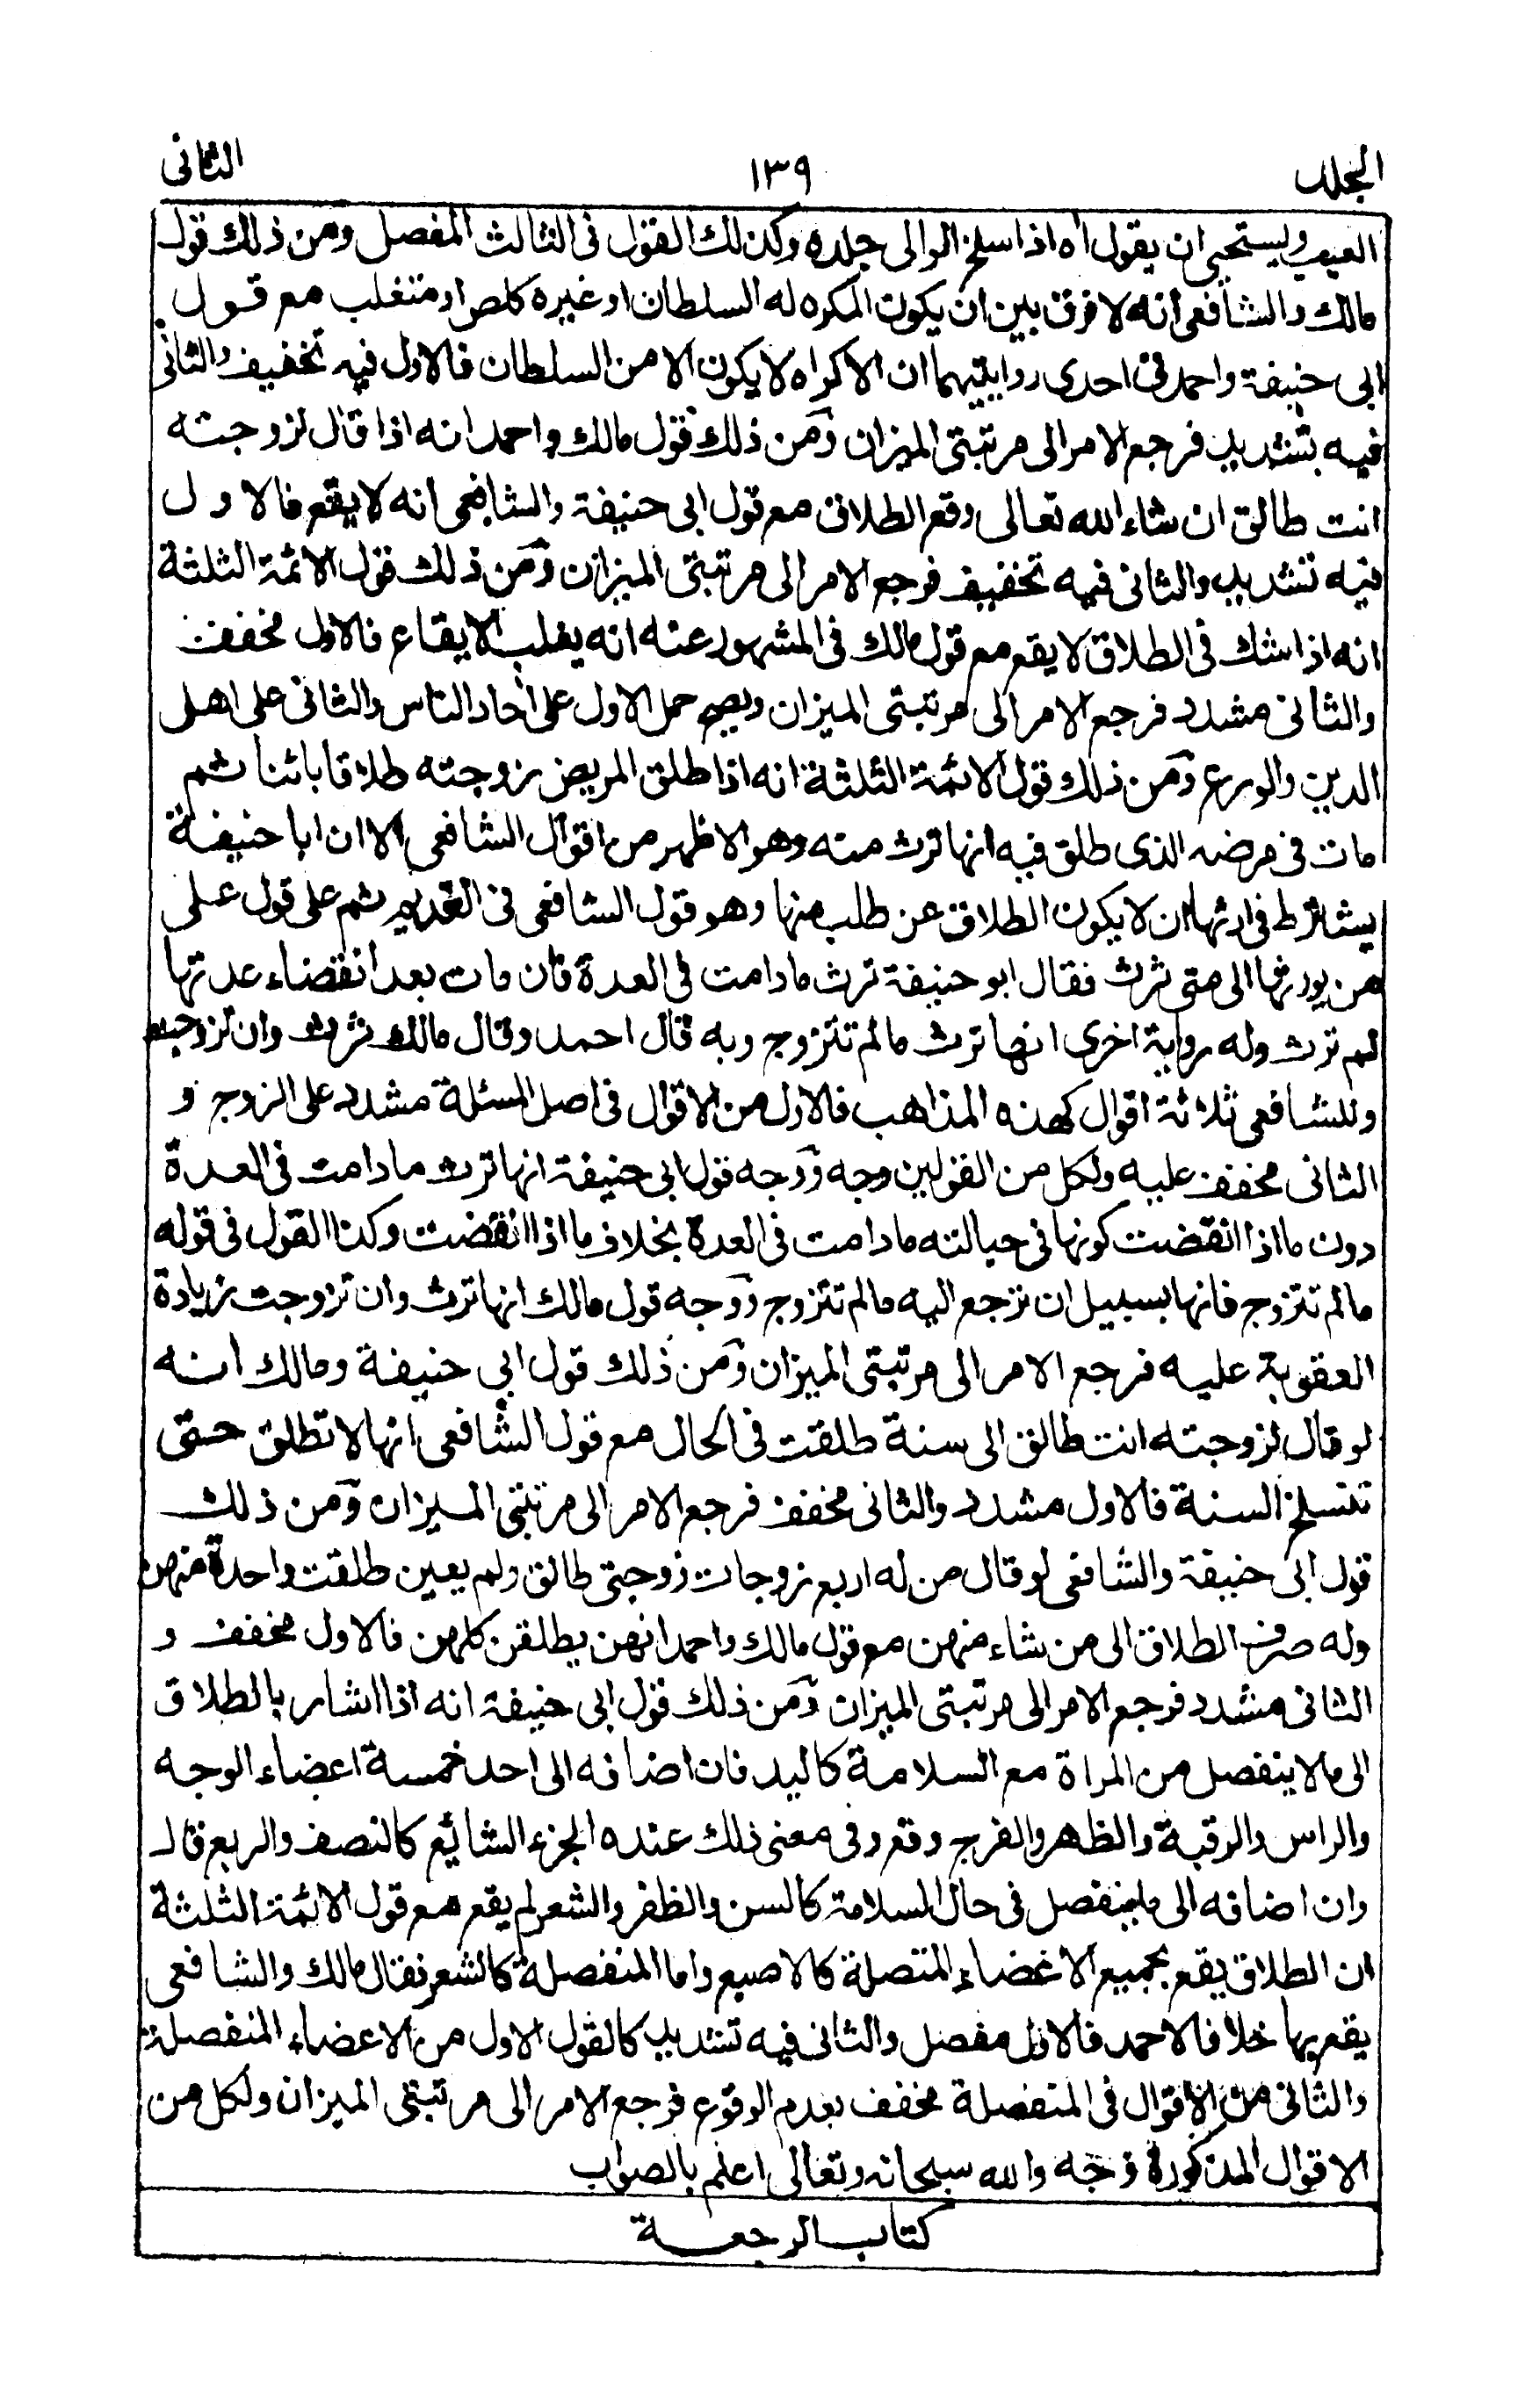 المجلد ١٣٩ الثانى
العيب ويستحيى ان يقول اه اذا سلخ الوالى جلده وكذلك القول فى الثالث المفصل ومن ذلك قول
مالك والشافعى انه لا فرق بين ان يكون المكره له السلطان او غيره كلص او متغلب مع قول
ابى حنيفة واحمد فى احدى روايتيهما ان الاكراه لا يكون الا من السلطان فالاول فيه تخفيف والثانى
فيه تشديد فرجع الامر الى مرتبتى الميزان ومن ذلك قول مالك واحمد انه اذا قال لزوجته
انت طالق ان شاء الله تعالى وقع الطلاق مع قول ابى حنيفة والشافعى انه لا يقع فالاول
فيه تشديد والثانى فيه تخفيف فرجع الامر الى مرتبتى الميزان ومن ذلك قول الائمة الثلثة
انه اذا شك فى الطلاق لا يقع مع قول مالك فى المشهور عنه انه يغلب الايقاع فالاول مخفف
والثانى مشدد فرجع الامر الى مرتبتى الميزان ويصح حمل الاول على احاد الناس والثانى على اهل
الدين والورع ومن ذلك قول الائمة الثلثة انه اذا طلق المريض زوجته طلاقا بائنا ثم
مات فى مرضه الذى طلق فيه انها ترث منه وهو الاظهر من اقوال الشافعى الا ان ابا حنيفة
يشترط فى ارثها ان لا يكون الطلاق عن طلب منها وهو قول الشافعى فى القديم ثم على قول على
من يورثها الى متى ترث فقال ابو حنيفة ترث ما دامت فى العدة فان مات بعد انقضاء عدتها
لم ترث وله رواية اخرى انها ترث ما لم تتزوج وبه قال احمد وقال مالك ترث وان تزوجت
وللشافعى ثلاثة اقوال كهذه المذاهب فالاول من الاقوال فى اصل المسئلة مشدد على الزوج و
الثانى مخفف عليه ولكل من القولين وجه ووجه قول ابى حنيفة انها ترث ما دامت فى العدة
دون ما اذا انقضت كونها فى حبالته ما دامت فى العدة بخلاف ما اذا انقضت وكذا القول فى قوله
ما لم تتزوج فانها بسبيل ان ترجع اليه ما لم تتزوج ووجه قول مالك انها ترث وان تزوجت زيادة
العقوبة عليه فرجع الامر الى مرتبتى الميزان ومن ذلك قول ابى حنيفة ومالك انه
لو قال لزوجته انت طالق الى سنة طلقت فى الحال مع قول الشافعى انها لا تطلق حتى
تنسلخ السنة فالاول مشدد والثانى مخفف فرجع الامر الى مرتبتى الميزان ومن ذلك
قول ابى حنيفة والشافعى لو قال من له اربع زوجات زوجتى طالق ولم يعين طلقت واحدة منهن
وله صرف الطلاق الى من شاء منهن مع قول مالك واحمد انهن يطلقن كلهن فالاول مخفف و
الثانى مشدد فرجع الامر الى مرتبتى الميزان ومن ذلك قول ابى حنيفة انه اذا اشار بالطلاق
الى ما لا ينفصل من المراة مع السلامة كاليد فان اضافه الى احد خمسة اعضاء الوجه
والراس والرقبة والظهر والفرج وقع وفى معنى ذلك عنده الجزء الشائع كالنصف والربع قال
وان اضافه الى ما ينفصل فى حال السلامة كالسن والظفر والشعر لم يقع مع قول الائمة الثلثة
ان الطلاق يقع بجميع الاعضاء المتصلة كالاصبع واما المنفصلة كالشعر فقال مالك والشافعى
يقع بها خلافا لاحمد فالاول مفصل والثانى فيه تشديد كالقول الاول من الاعضاء المنفصلة
والثانى من الاقوال فى المنفصلة مخفف بعدم الوقوع فرجع الامر الى مرتبتى الميزان ولكل من
الاقوال المذكورة وجه والله سبحانه وتعالى اعلم بالصواب
كتاب الرجعة